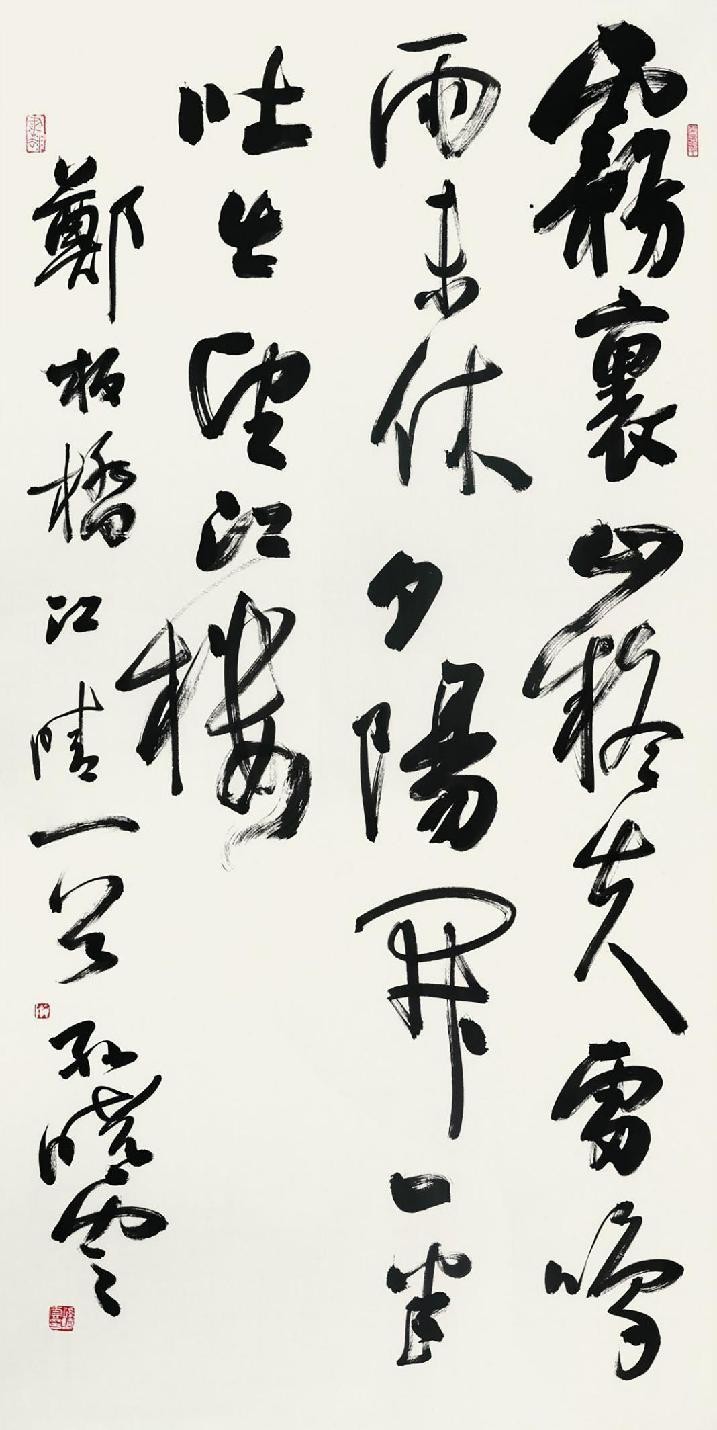 霧裏山疑失雷鳴
雨未休夕陽開一半
吐出望江樓
鄭板橋江晴一首孫曉雲